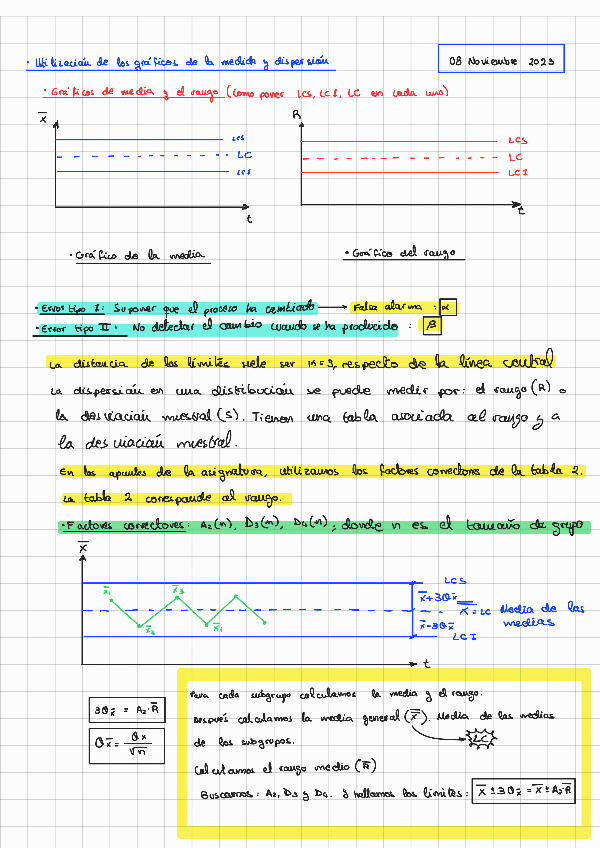 · Utilización de los gráficos de la media y dispersión
08 Noviembre 2023
· Gráficos de media y el rango (como poner LCS, LCI, LC en cada uno)
X̅
LCS
LC
LCI
t
R
LCS
LC
LCI
t
· Gráfico de la media
· Gráfico del rango
· Error tipo I: Suponer que el proceso ha cambiado → Falsa alarma : α
· Error tipo II: No detectar el cambio cuando se ha producido : β
La distancia de los límites suele ser K=3, respecto de la línea central
La dispersión en una distribución se puede medir por: el rango (R) o
la desviación muestral (S). Tienen una tabla asociada al rango y a
la desviación muestral.
En los apuntes de la asignatura, utilizamos los factores correctores de la tabla 2.
La tabla 2 corresponde al rango.
· Factores correctores: A₂(n), D₃(n), D₄(n); donde n es el tamaño de grupo
X̅
LCS
x̅₁
x̅₃
x̅+3σx̅
X̿ = LC Media de las
medias
x̅₂
x̅₄
x̅-3σx̅
LCI
t
3σx̅ = A₂·R̅
σx̅ = σx / √n
Para cada subgrupo calculamos la media y el rango.
Después calculamos la media general (X̿). Media de las medias
de los subgrupos.
LC
Calculamos el rango medio (R̅)
Buscamos: A₂, D₃ y D₄. y hallamos los límites: X̿ ± 3σx̅ = X̿ ± A₂·R̅